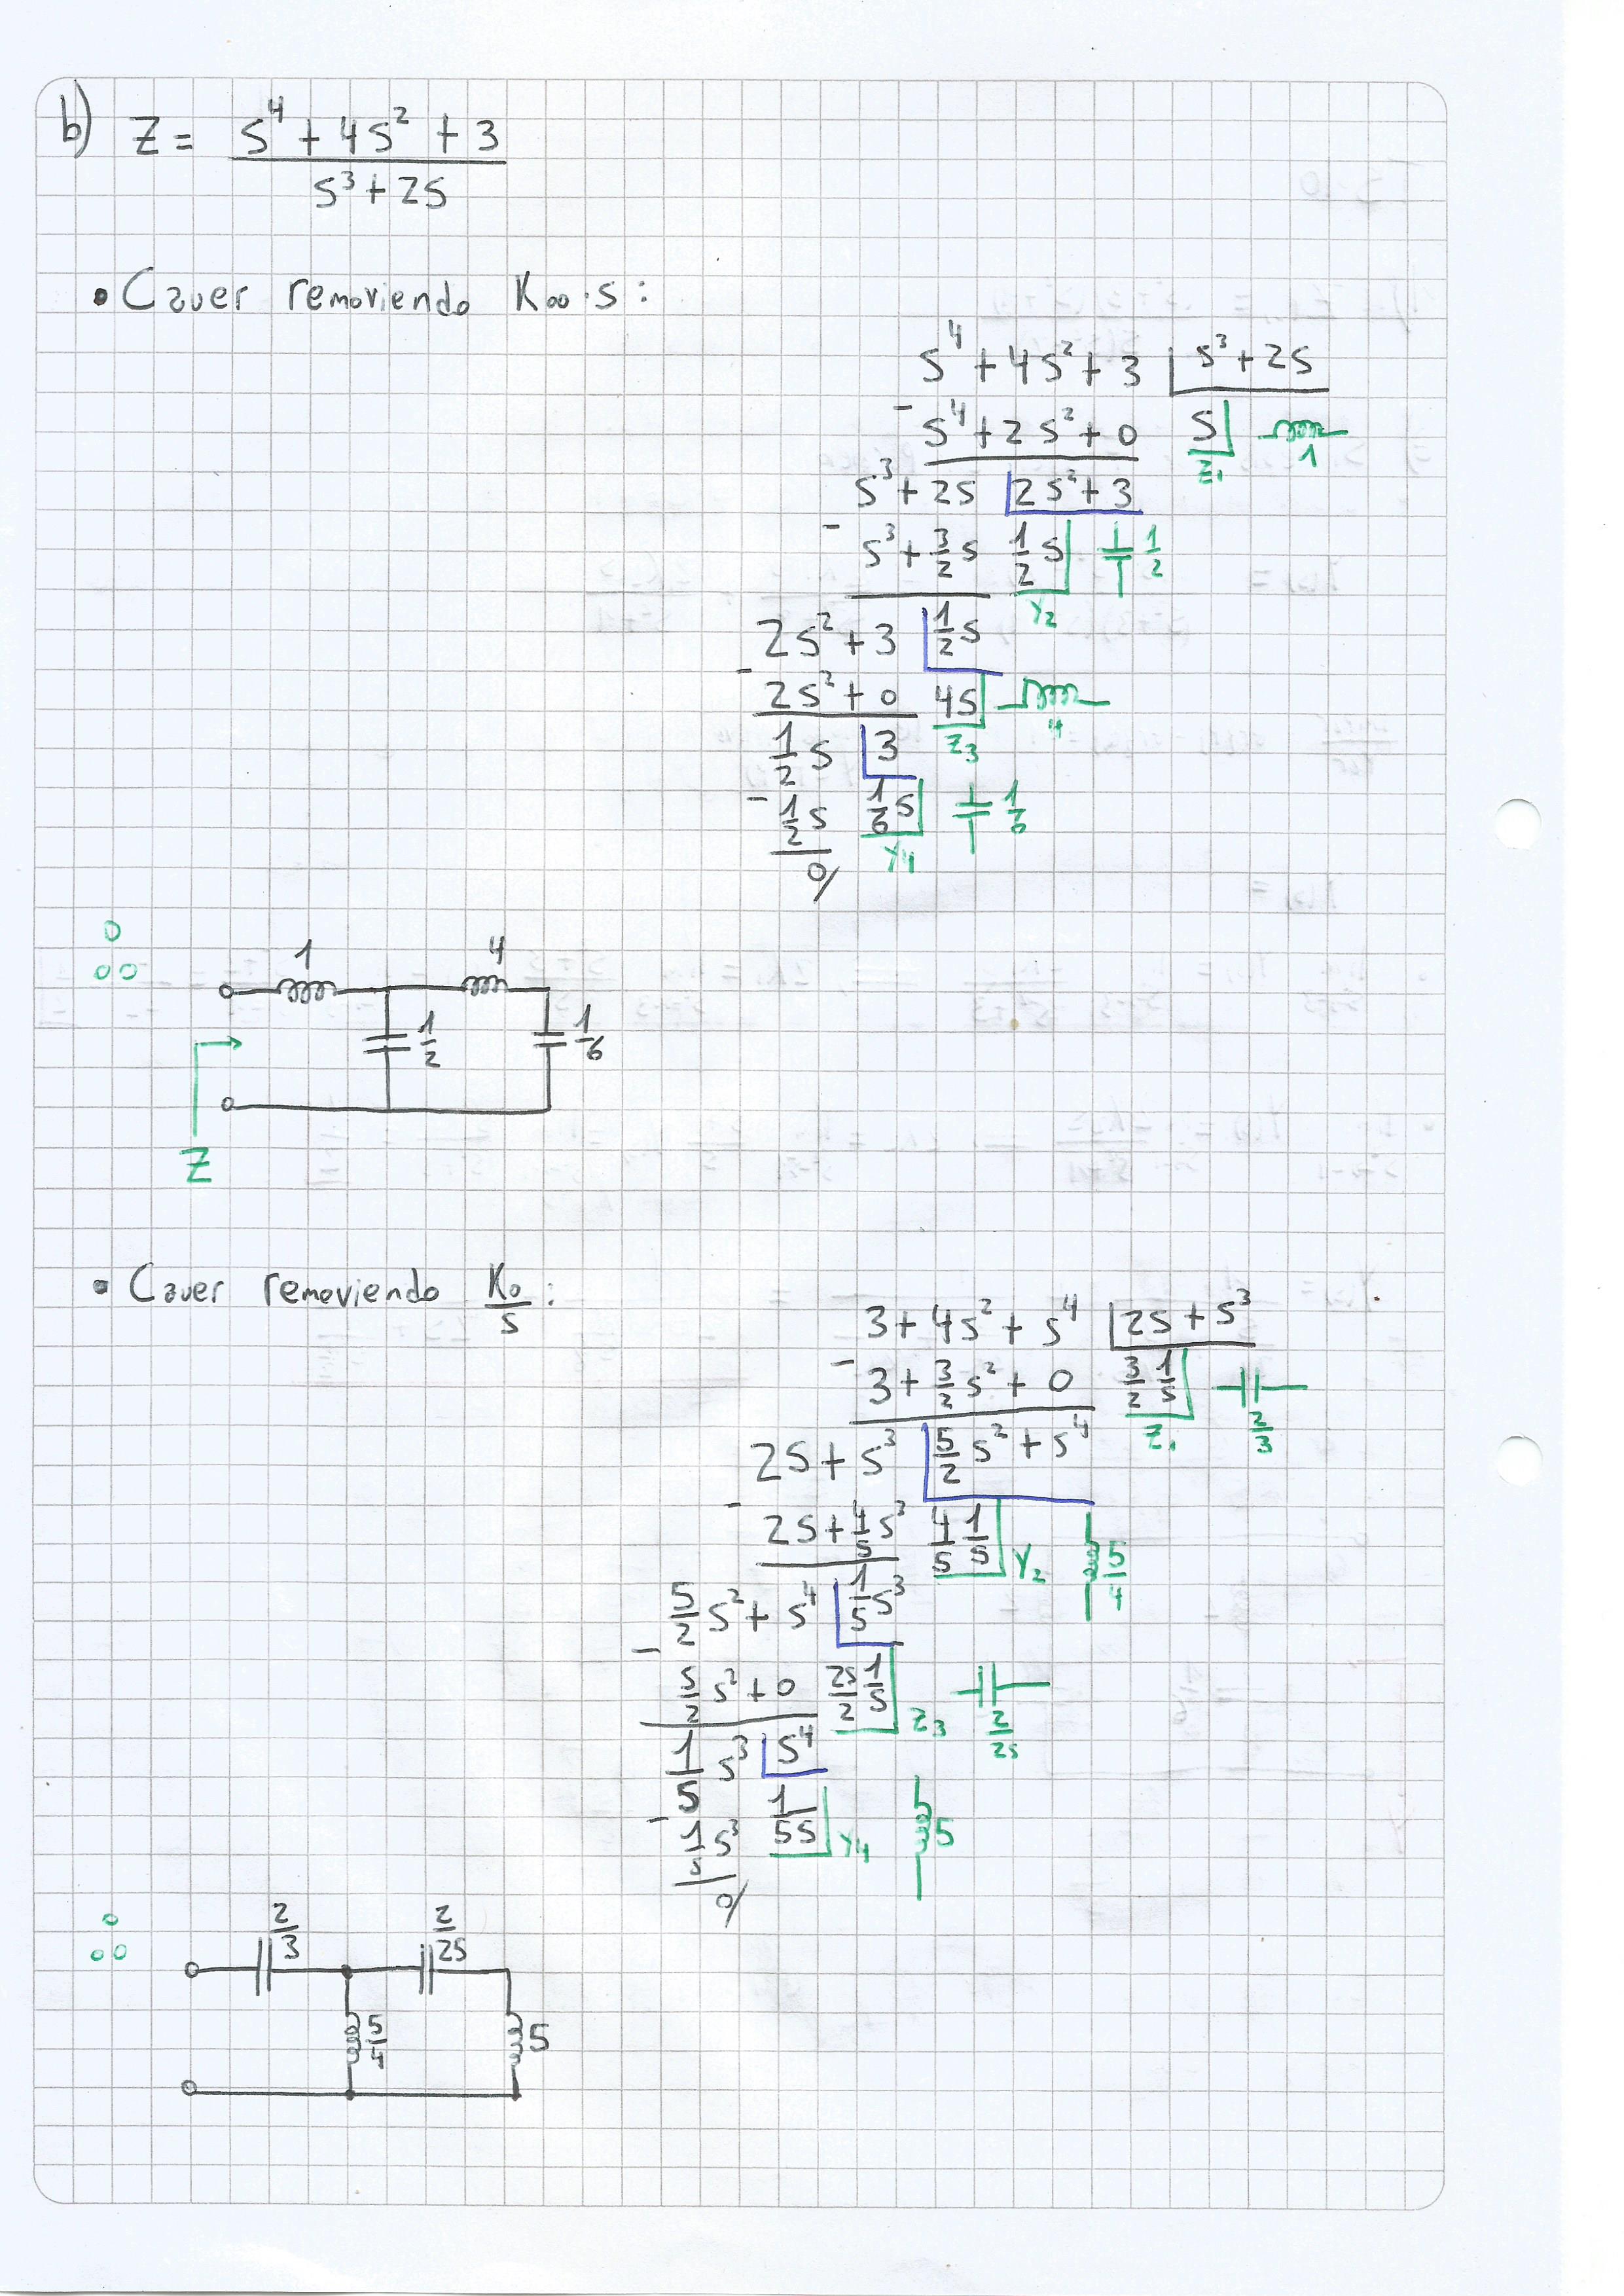 b) Z = (s⁴ + 4s² + 3) / (s³ + 2s)
• Cauer removiendo K∞·s:
s⁴ + 4s² + 3 | s³ + 2s
- s⁴ + 2s² + 0   s   1
Z₁
s³ + 2s | 2s² + 3
- s³ + 3/2 s   1/2 s   1/2
Y₂
2s² + 3 | 1/2 s
- 2s² + 0   4s   4
Z₃
1/2 s | 3
- 1/2 s   1/6 s   1/6
Y₄
0
1   4
1/2   1/6
Z
• Cauer removiendo K₀/s:
3 + 4s² + s⁴ | 2s + s³
- 3 + 3/2 s² + 0   3/2 1/s   2/3
Z₁
2s + s³ | 5/2 s² + s⁴
- 2s + 4/5 s³   4/5 1/s   Y₂   5/4
5/2 s² + s⁴ | 1/5 s³
- 5/2 s² + 0   25/2 1/s   Z₃   2/25
1/5 s³ | s⁴
- 1/5 s³   1/5s   Y₄   5
0
2/3   2/25
5/4   5